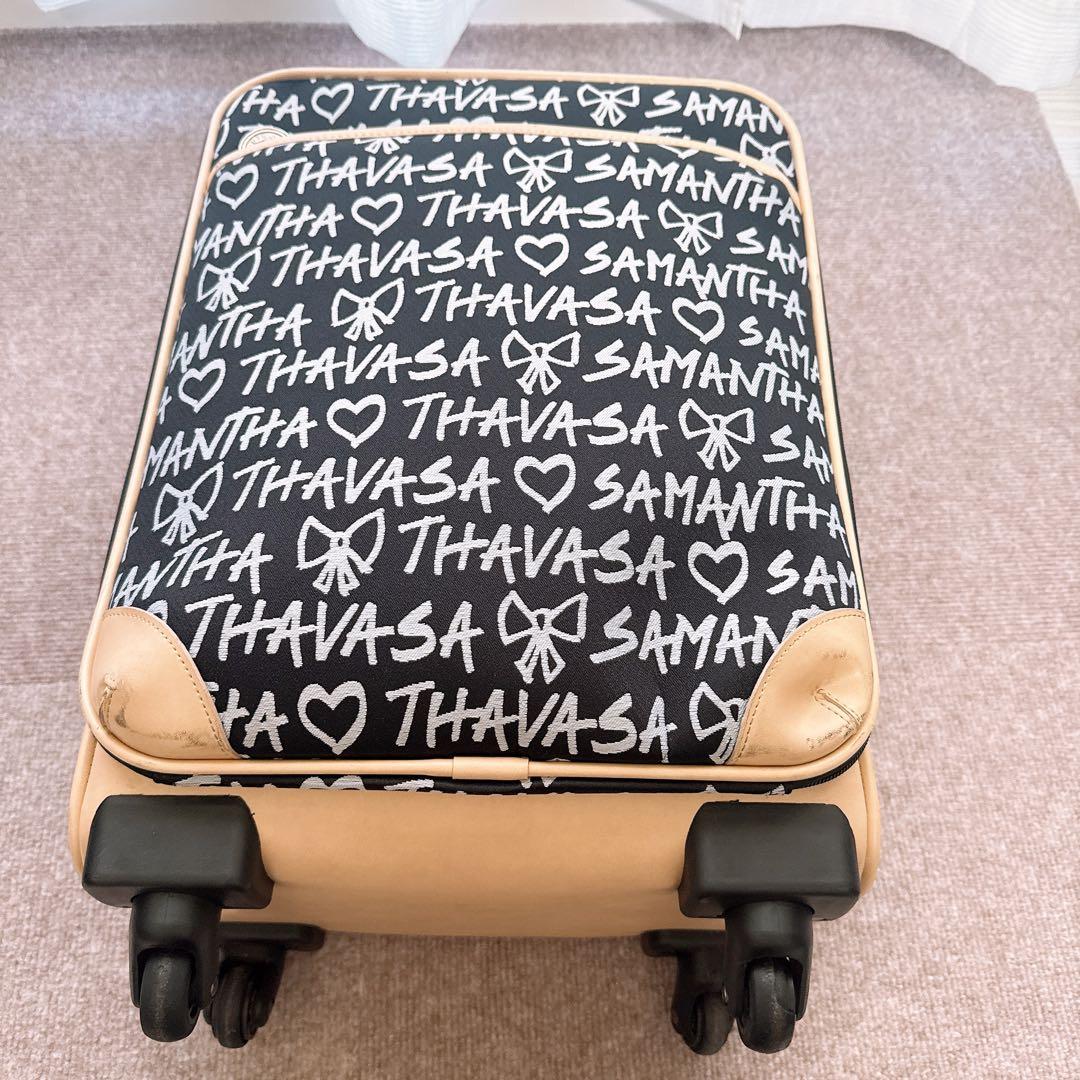 THA THAVASA SAMAN
THA THAVASA SAMANTHA
THAVASA SAMANTHA
MANTHA THAVASA SAM
THAVASA SAMANTHA
ANTHA THAVASA SAMA
A THAVASA SAMANTHA
MANTHA THAVASA SAM
THAVASA SAMANTHA
ANTHA THAVASA SAM
THAVASA SAMAN
HA THAVASA